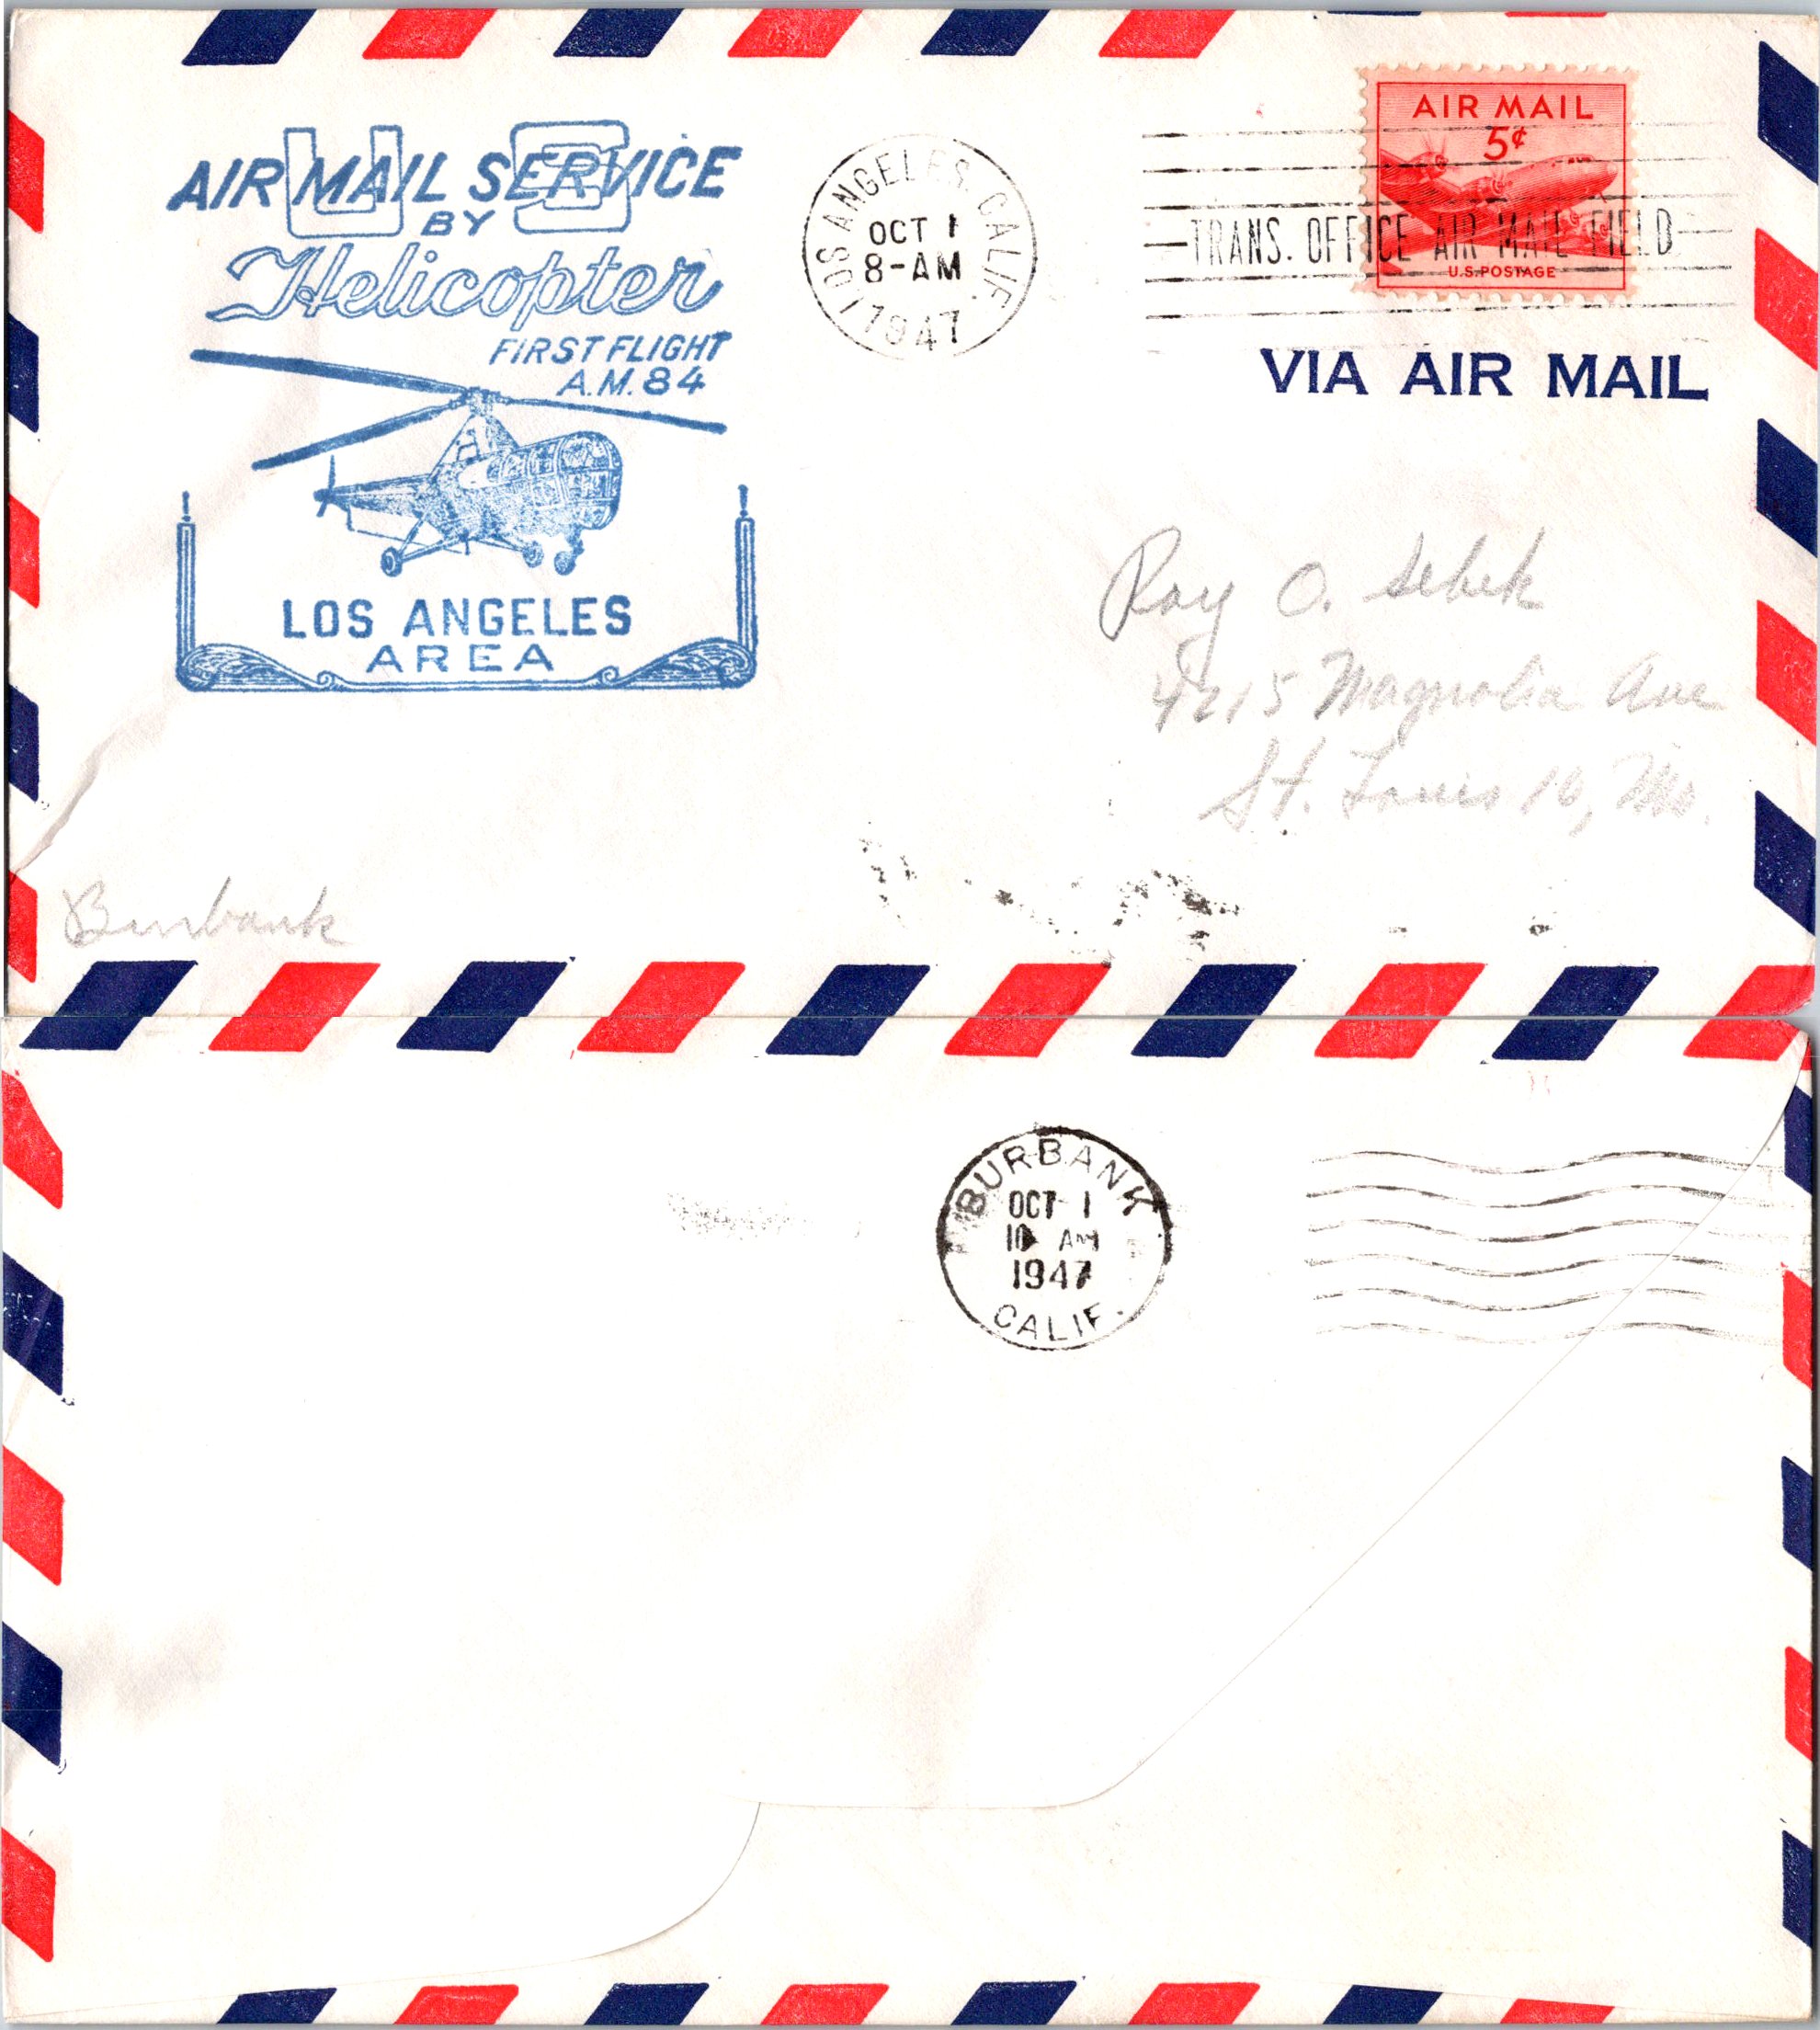 US
AIR MAIL SERVICE
BY
Helicopter
FIRST FLIGHT
A.M. 84
LOS ANGELES
AREA
LOS ANGELES, CALIF.
OCT 1
8-AM
1947
AIR MAIL
5¢
U.S. POSTAGE
TRANS. OFFICE AIR MAIL FIELD
VIA AIR MAIL
Roy O. Sebek
4215 Magnolia Ave
St. Louis 16, Mo.
Burbank
BURBANK
OCT 1
10 AM
1947
CALIF.